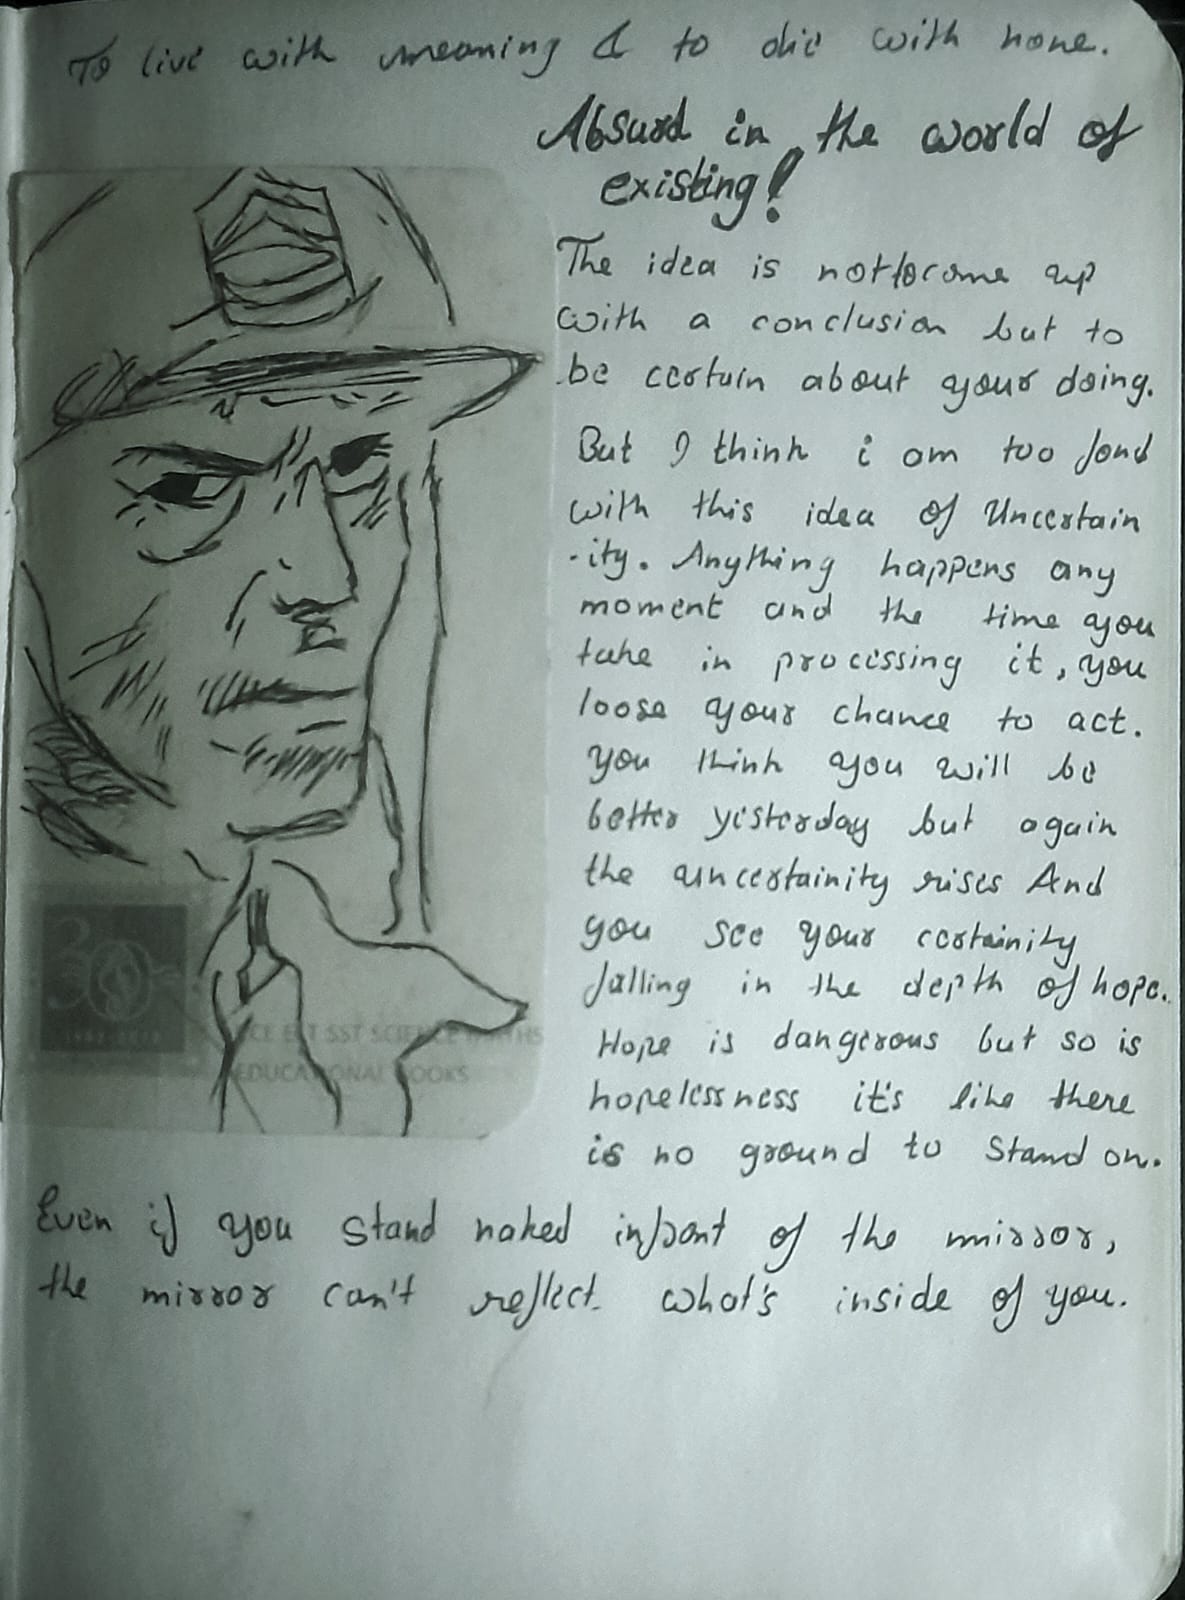 To live with meaning & to die with none.
Absurd in the world of
existing!
The idea is not to come up
with a conclusion but to
be certain about your doing.
But I think i am too fond
with this idea of Uncertain
-ity. Anything happens any
moment and the time you
take in processing it, you
loose your chance to act.
you think you will be
better yesterday but again
the uncertainity rises And
you see your certainity
falling in the depth of hope.
Hope is dangerous but so is
hopelessness it's like there
is no ground to stand on.
Even if you stand naked infront of the mirror,
the mirror can't reflect what's inside of you.
30
SST SCIENCE
EDUCATIONAL BOOKS